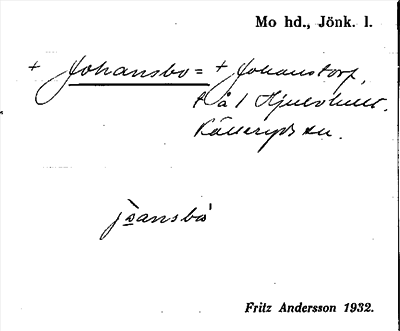 Mo hd., Jönk. l.
+ Johansbo = + Johanstorp,
t å 1 Hjulhult.
Källeryds sn.
jòansbo
Fritz Andersson 1932.